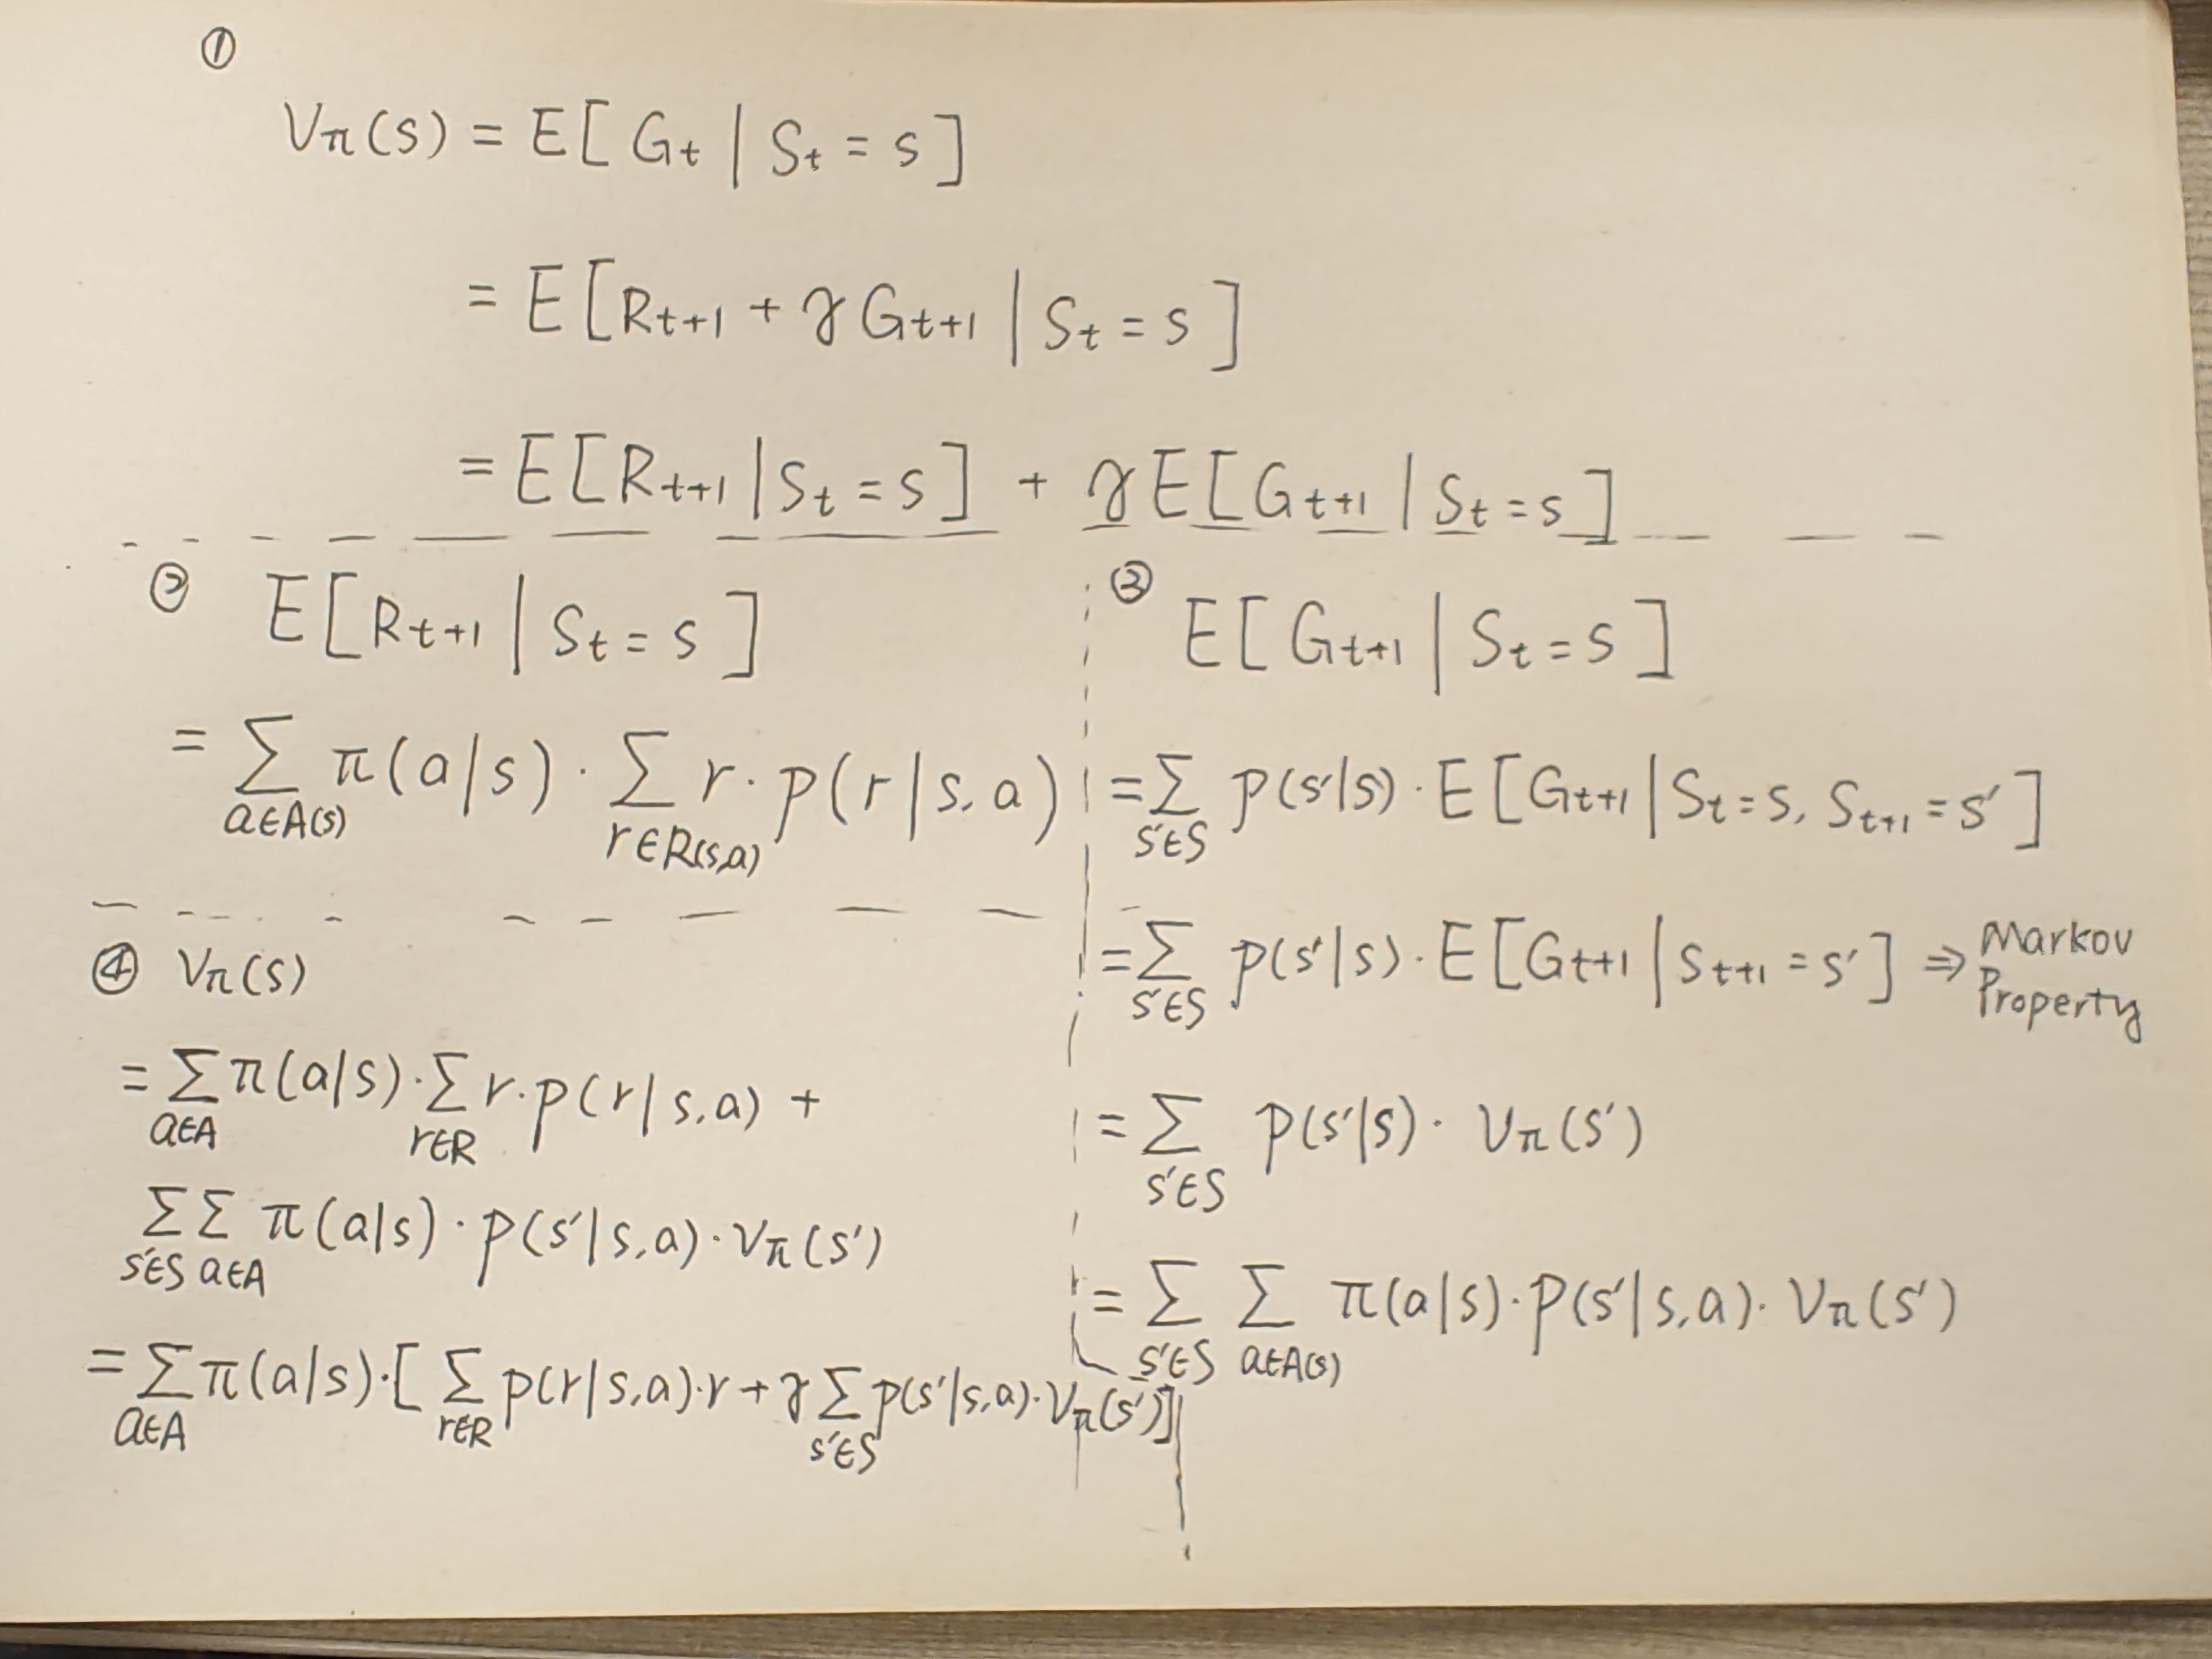 ①
Vπ(s) = E[Gt | St = s]
= E[Rt+1 + γGt+1 | St = s]
= E[Rt+1 | St = s] + γE[Gt+1 | St = s]
②
E[Rt+1 | St = s]
= Σa∈A(s) π(a|s) · Σr∈R(s,a) r · p(r|s,a)
③
E[Gt+1 | St = s]
= Σs'∈S p(s'|s) · E[Gt+1 | St = s, St+1 = s']
= Σs'∈S p(s'|s) · E[Gt+1 | St+1 = s'] ⇒ Markov Property
= Σs'∈S p(s'|s) · Vπ(s')
= Σs'∈S Σa∈A(s) π(a|s) · p(s'|s,a) · Vπ(s')
④ Vπ(s)
= Σa∈A π(a|s) · Σr∈R r · p(r|s,a) +
Σs'∈S Σa∈A π(a|s) · p(s'|s,a) · Vπ(s')
= Σa∈A π(a|s) · [Σr∈R p(r|s,a) · r + γ Σs'∈S p(s'|s,a) · Vπ(s')]